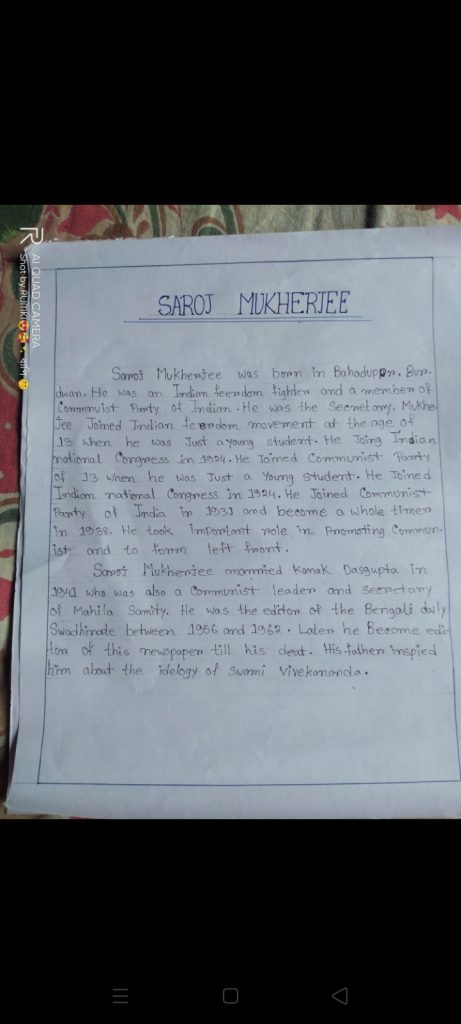 SAROJ MUKHERJEE
Saroj Mukherjee was born in Bahadurpor, Bur-
dwan. He was an Indian feerdom fighter and a member of
Communist Party of Indian. He was the Secretary. Mukhe
Jee Joined Indian feerdom movement at the age of
13 when he was Just a young student. He Joing Indian
national Congress in 1924. He Joined Communist Party
of 13 when he was Just a Young Student. He Joined
Indian national Congress in 1924. He Joined Communist
Party of India in 1931 and become a whole timer
in 1938. He took important role in Promoting Commun-
ist and to form left front.
Saroj Mukherjee married Kanak Dasgupta in
1941 who was also a Communist leader and secretary
of Mahila Samity. He was the editor of the Bengali daily
Swadhinate between 1956 and 1962. Later he Become edi-
tor of this newspaper till his deat. His father inspied
him about the idelogy of Swami Vivekananda.
AI QUAD CAMERA
Shot by RUMKI